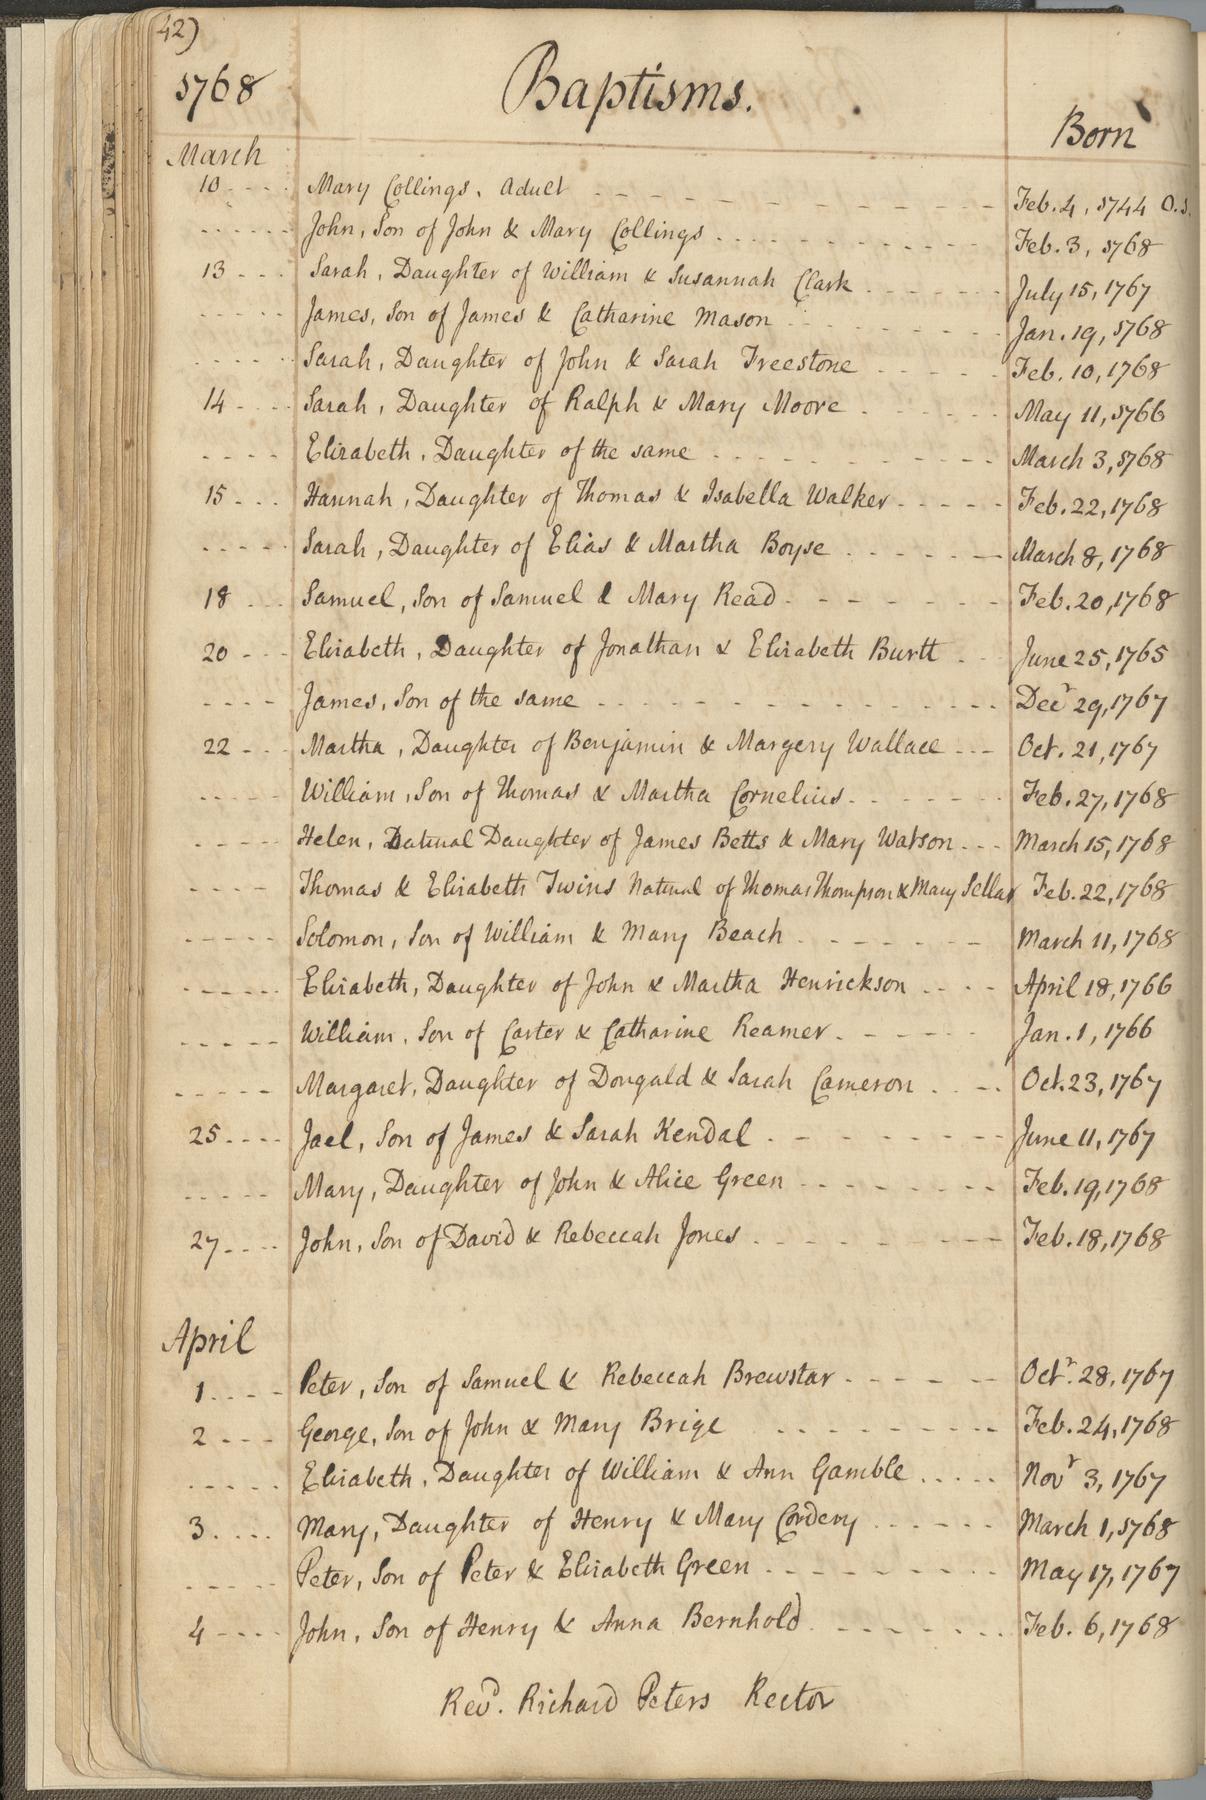 42)
1768 Baptisms. Born
March
10 - - - - Mary Collings. Adult - - - - - - - - - Feb. 4, 1744 O.S.
- - - - - - John, Son of John & Mary Collings - - - - - - - - - Feb. 3, 1768
13 - - - Sarah, Daughter of William & Susannah Clark - - - - - - July 15, 1767
- - - - - James, Son of James & Catharine Mason - - - - - - Jan. 19, 1768
- - - - - Sarah, Daughter of John & Sarah Freestone - - - - - Feb. 10, 1768
14 - - - - Sarah, Daughter of Ralph & Mary Moore - - - - - - May 11, 1766
- - - - Elizabeth, Daughter of the same - - - - - - - - March 3, 1768
15 - - - Hannah, Daughter of Thomas & Isabella Walker - - - - - Feb. 22, 1768
- - - - - Sarah, Daughter of Elias & Martha Boyse - - - - - - March 8, 1768
18 - - - Samuel, Son of Samuel & Mary Read - - - - - - - Feb. 20, 1768
20 - - - Elizabeth, Daughter of Jonathan & Elizabeth Burtt - - June 25, 1765
- - - - James, Son of the same - - - - - - - - - - - - Decr 29, 1767
22 - - - Martha, Daughter of Benjamin & Margery Wallace - - - Oct. 21, 1767
- - - - - William, Son of Thomas & Martha Cornelius - - - - - - Feb. 27, 1768
- - - - - Helen, Natural Daughter of James Betts & Mary Watson - - - March 15, 1768
- - - - Thomas & Elizabeth Twins Natural of Thomas Thompson & Mary Sellar Feb. 22, 1768
- - - - - Solomon, Son of William & Mary Beach - - - - - - March 11, 1768
- - - - - Elizabeth, Daughter of John & Martha Henrickson - - - - April 18, 1766
- - - - - William, Son of Carter & Catharine Reamer - - - - - Jan. 1, 1766
- - - - - Margaret, Daughter of Dougald & Sarah Cameron - - - - Oct. 23, 1767
25 - - - - Jael, Son of James & Sarah Kendal - - - - - - - - June 11, 1767
- - - - - Mary, Daughter of John & Alice Green - - - - - - - Feb. 19, 1768
27 - - - - John, Son of David & Rebeccah Jones - - - - - - - - Feb. 18, 1768
April
1 - - - - Peter, Son of Samuel & Rebeccah Brewstar - - - - - Octr. 28, 1767
2 - - - George, Son of John & Mary Brige - - - - - - - - Feb. 24, 1768
- - - - - Elizabeth, Daughter of William & Ann Gamble - - - - - Novr 3, 1767
3 - - - - Mary, Daughter of Henry & Mary Cordery - - - - - - March 1, 1768
- - - - - Peter, Son of Peter & Elizabeth Green - - - - - - - - May 17, 1767
4 - - - - John, Son of Henry & Anna Bernhold - - - - - - - Feb. 6, 1768
Revd. Richard Peters Rector